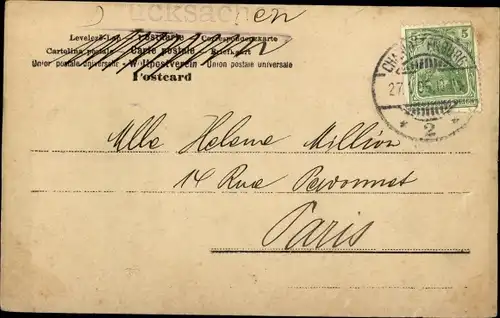 ucksachen
Levelező-Lap Postkarte Correspondenzkarte
Cartolina postale Carte postale Briefkaart
Union postale universelle - Weltpostverein - Union postale universale
Postcard
5
27
* 2 *
Mlle Helene Million
14 Rue Perdonnet
Paris